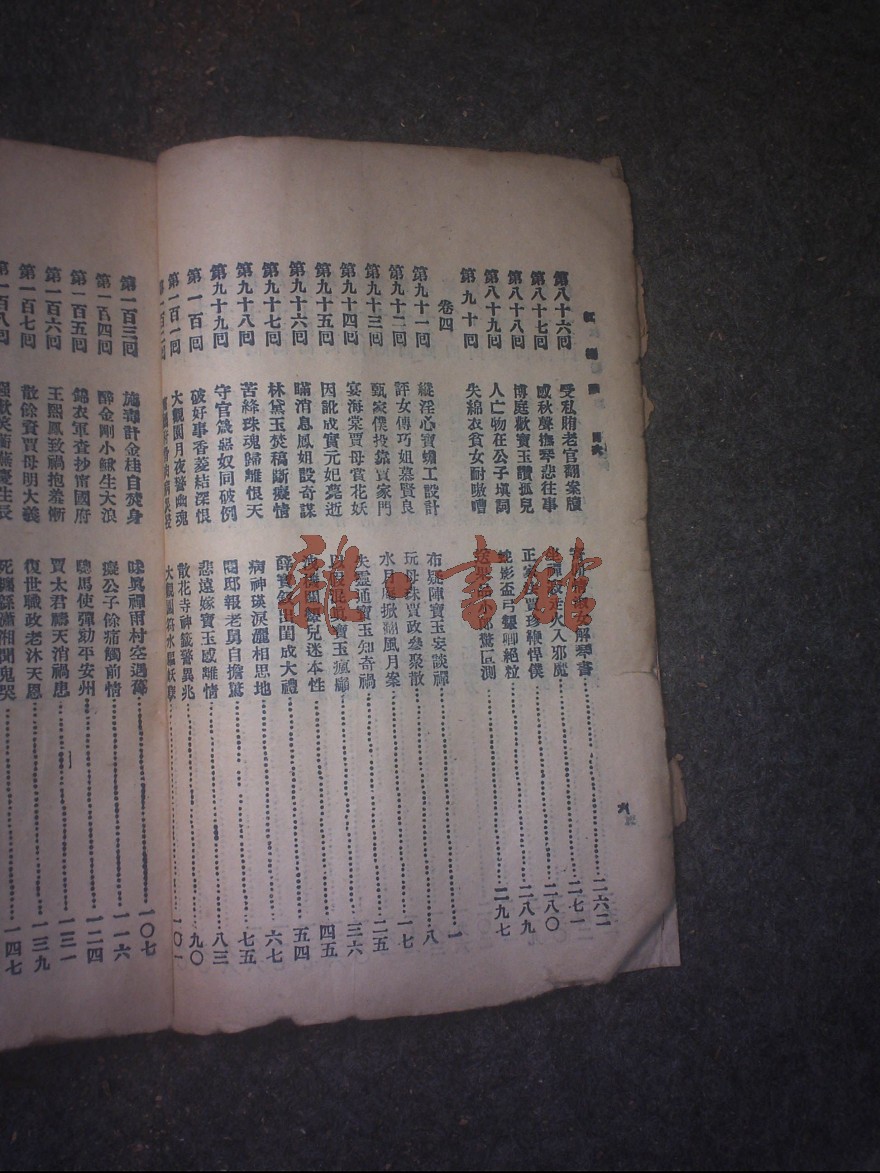 紅樓夢 目次
六
第八十六回 受私賄老官翻案牘 寄閒情淑女解琴書 二六二
第八十七回 感秋聲撫琴悲往事 坐禪寂走火入邪魔 二七一
第八十八回 博庭歡寶玉讚孤兒 正家法賈珍鞭悍僕 二八〇
第八十九回 人亡物在公子填詞 蛇影盃弓顰卿絕粒 二八九
第九十回 失綿衣貧女耐嗷嘈 送果品小郎驚叵測 二九七
卷四
第九十一回 縱淫心寶蟾工設計 布疑陣寶玉妄談禪 一
第九十二回 評女傳巧姐慕賢良 玩母珠賈政參聚散 八
第九十三回 甄家僕投靠賈家門 水月庵掀翻風月案 一七
第九十四回 宴海棠賈母賞花妖 失靈通寶玉知奇禍 二五
第九十五回 因訛成實元妃薨逝 以假混真寶玉瘋癲 三六
第九十六回 瞞消息鳳姐設奇謀 洩機關顰兒迷本性 四五
第九十七回 林黛玉焚稿斷癡情 薛寶釵出閨成大禮 五四
第九十八回 苦絳珠魂歸離恨天 病神瑛淚灑相思地 六七
第九十九回 守官箴惡奴同破例 閱邸報老舅自擔驚 七五
第一百回 破好事香菱結深恨 悲遠嫁寶玉感離情 八三
第一百一回 大觀園月夜警幽魂 散花寺神籤驚異兆 九〇
第一百二回 大觀園符水驅妖孽 一〇一
第一百三回 施毒計金桂自焚身 昧真禪雨村空遇舊 一〇七
第一百四回 醉金剛小鰍生大浪 癡公子餘痛觸前情 一一六
第一百五回 錦衣軍查抄甯國府 驄馬使彈劾平安州 一二四
第一百六回 王熙鳳致禍抱羞慚 賈太君禱天消禍患 一三一
第一百七回 散餘資賈母明大義 復世職政老沐天恩 一三九
第一百八回 強歡笑蘅蕪慶生辰 死纏綿瀟湘聞鬼哭 一四七
雜·書館